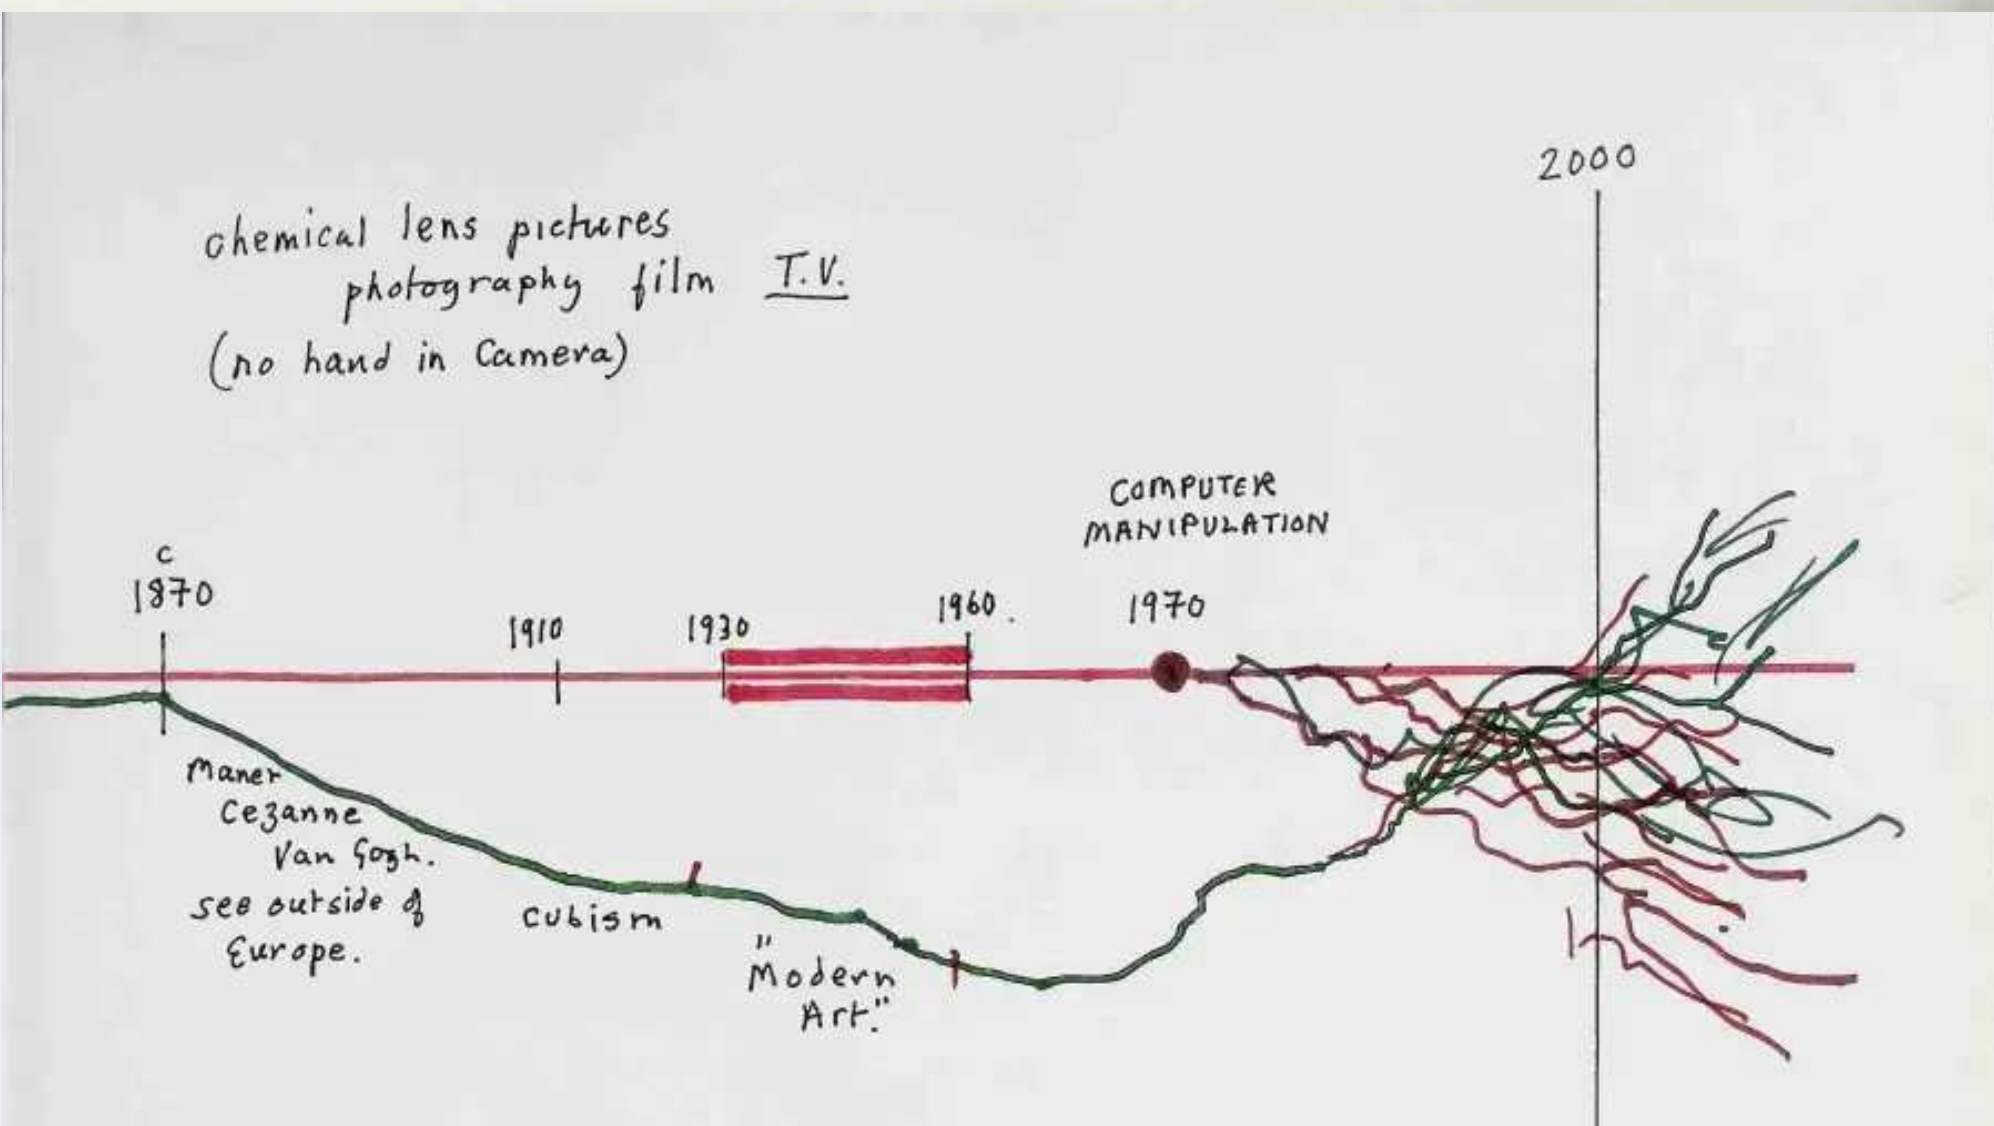 2000
chemical lens pictures
photography film T.V.
(no hand in Camera)
COMPUTER
MANIPULATION
c
1870
1910
1930
1960.
1970
Manet
Cezanne
Van Gogh.
see outside of
Europe.
cubism
"Modern
Art."